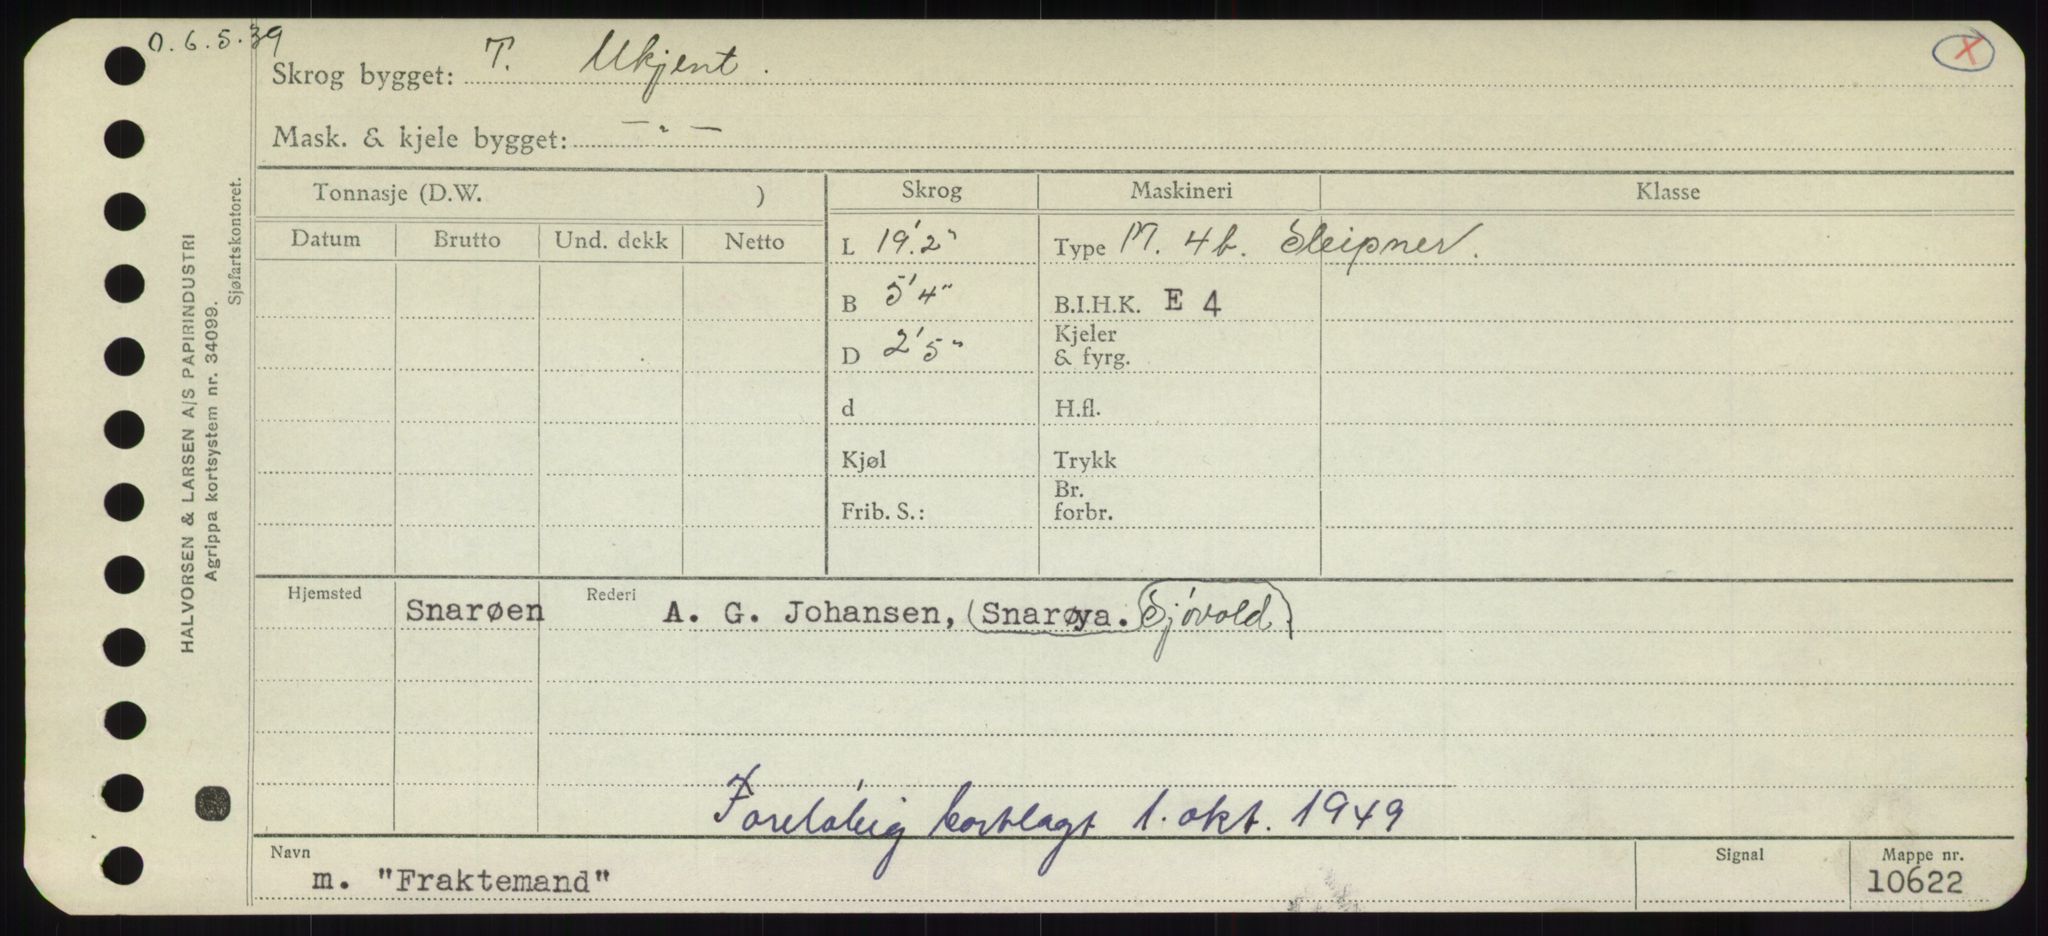 O. 6. 5. 39
Skrog bygget: T. Ukjent.
Mask. & kjele bygget: — " —
Tonnasje (D.W. ) Skrog Maskineri Klasse
Datum Brutto Und. dekk Netto
L 19'.2" Type M. 4 b. Sleipner.
B 5'4" B.I.H.K. E 4
D 2'5" Kjeler & fyrg.
d H.fl.
Kjøl Trykk
Frib. S.: Br. forbr.
Hjemsted Snarøen Rederi A. G. Johansen, (Snarøya. Sjóvold)
Foreløbig bortlagt 1. okt. 1949
Navn m. "Fraktemand" Signal Mappe nr. 10622
HALVORSEN & LARSEN A/S PAPIRINDUSTRI
Agrippa kortsystem nr. 34099.
Sjøfartskontoret.
X